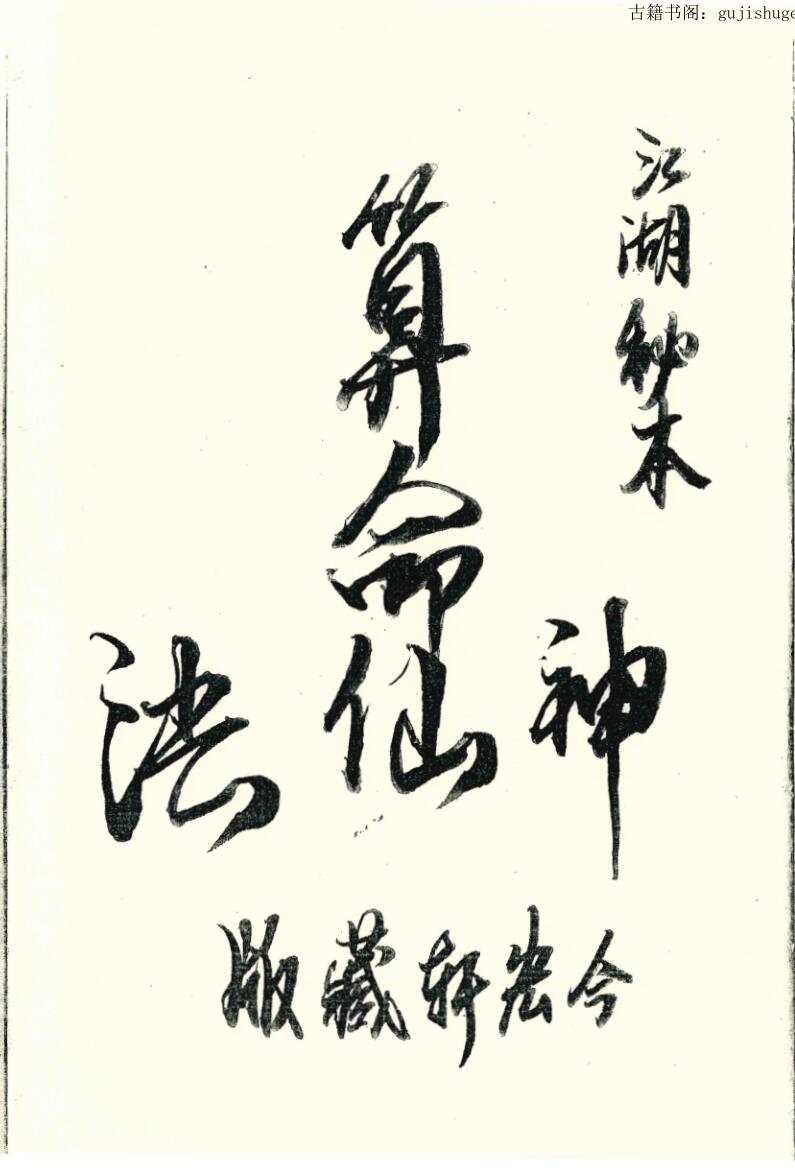 古籍书阁：gujishuge
江湖秘本
算命
神仙法
今宏轩藏版